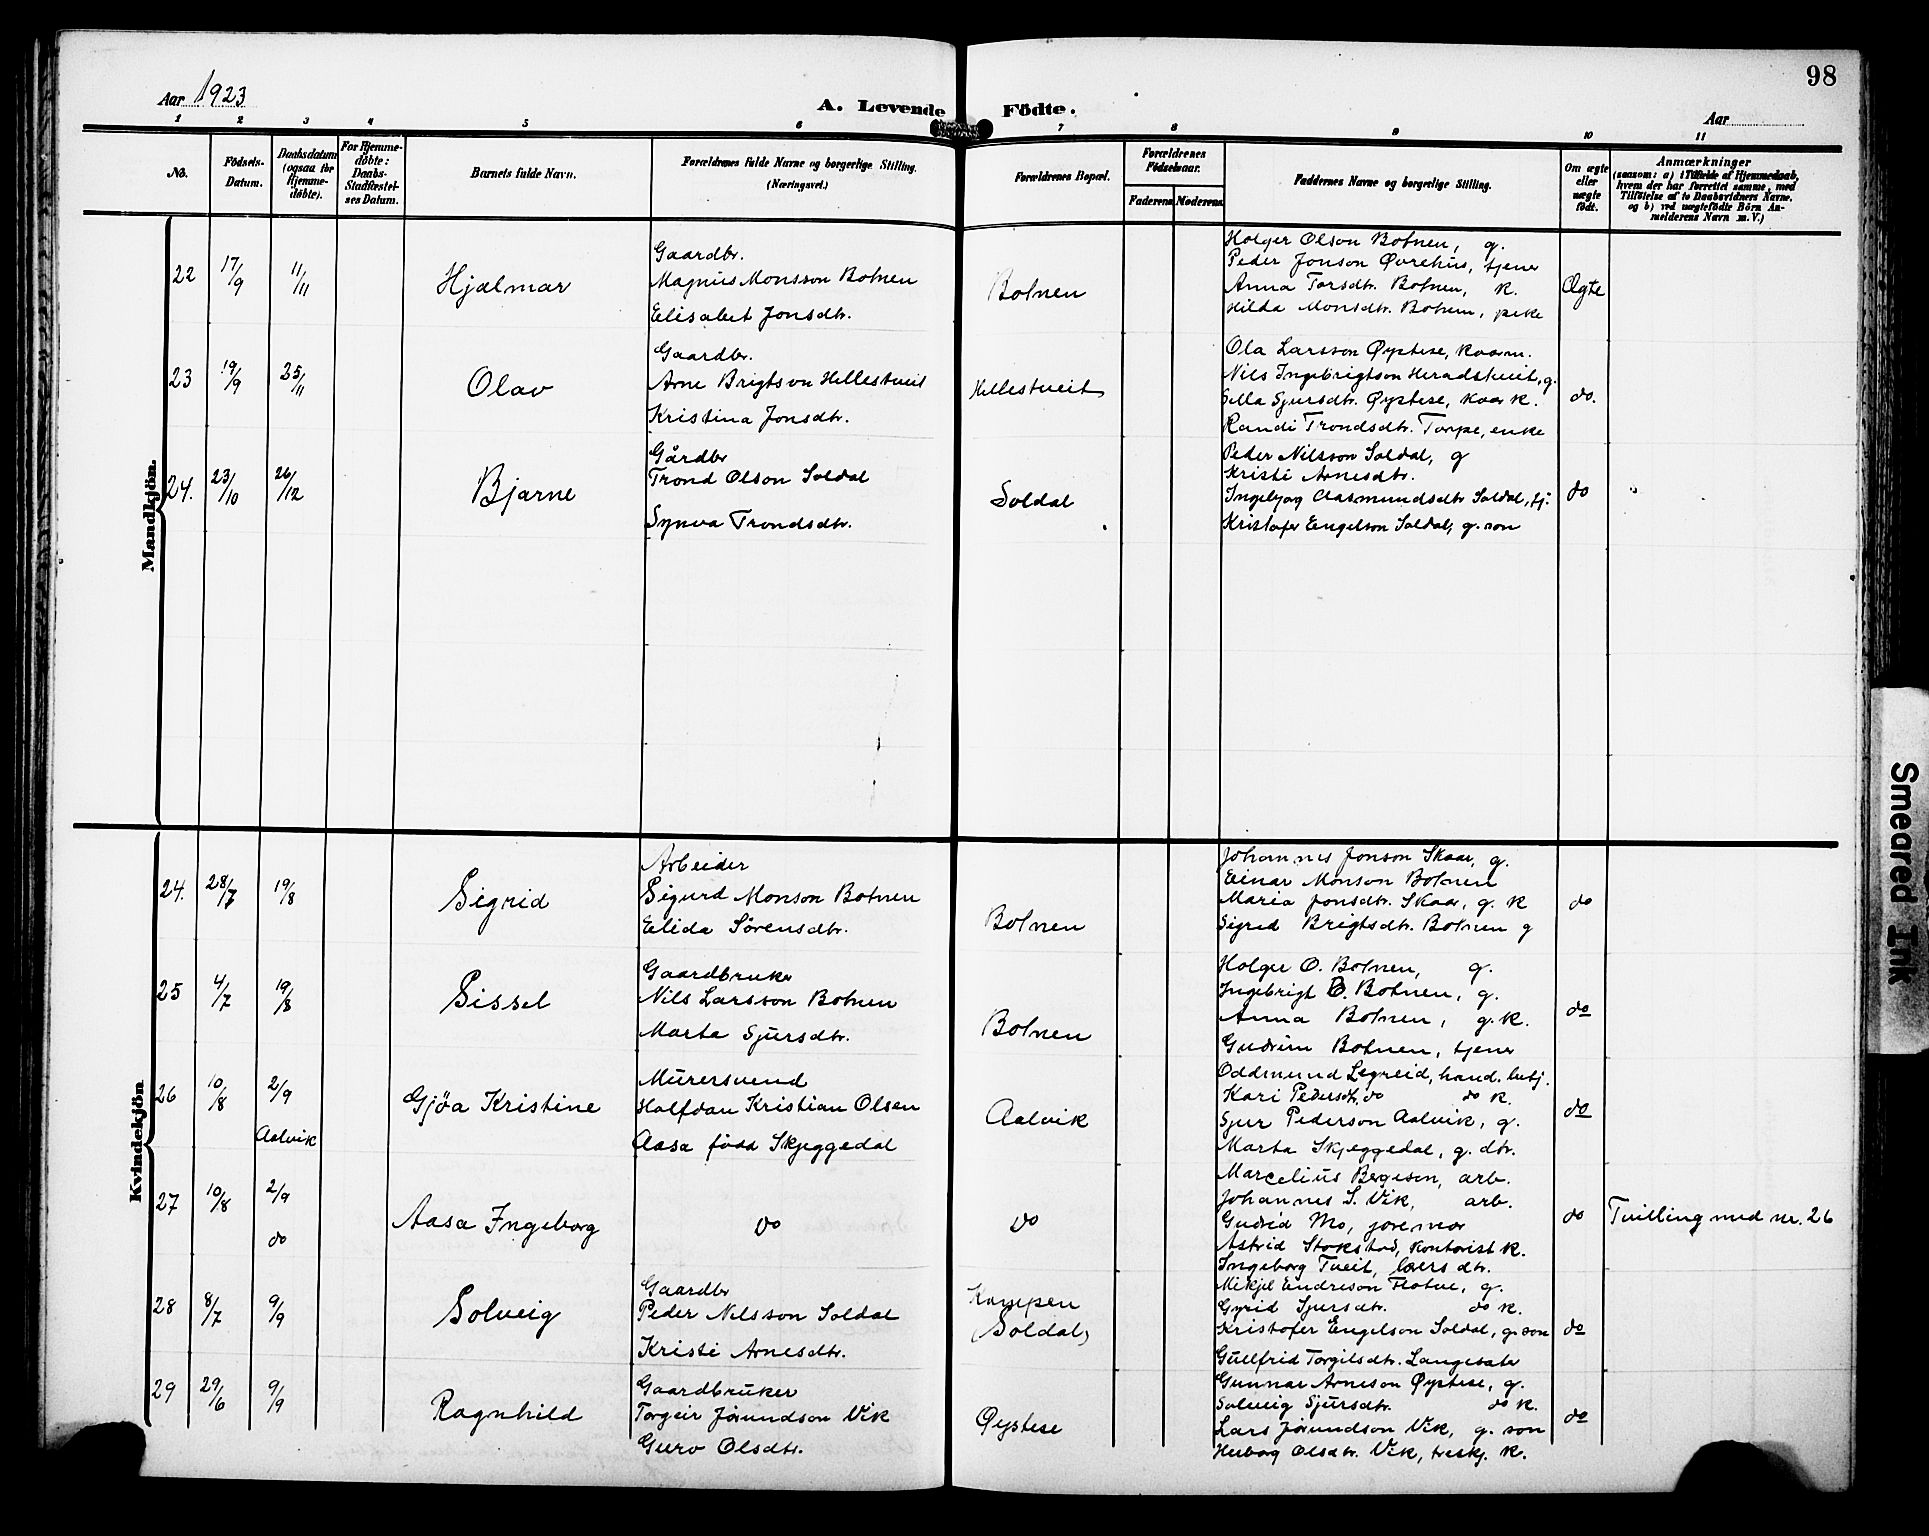 98
Aar 1923
A. Levende Födte.
Aar
1 2 3 4 5 6 7 8 9 10 11
No.
Födsels-Datum.
Daabsdatum (ogsaa for Hjemme-döbte).
For Hjemme-döbte: Daabs-Stadfæstel-ses Datum.
Barnets fulde Navn.
Forældrenes fulde Navne og borgerlige Stilling. (Næringsvei.)
Forældrenes Bopæl.
Forældrenes Födselsaar.
Faderens. Moderens.
Faddernes Navne og borgerlige Stilling.
Om ægte eller uægte födt.
Anmærkninger
(saasom: a) i Tilfælde af Hjemmedaab,
hvem der har forrettet samme, med
Tilföielse af to Daabsvidners Navne.
og b) ved uægtefödte Börn An-
melderens Navn m. V.)
Mandkjön.
22 17/9 11/11 Hjalmar
Gaardbr.
Magnus Monsson Botnen
Elisabet Jonsdtr.
Botnen
Holger Olson Botnen, g.
Peder Jonson Øvrehus, tjener
Anna Torsdtr. Botnen, K.
Hilda Monsdtr. Botnen, pike
Ægte
23 19/9 25/11 Olav
Gaardbr.
Arne Brigtson Hellestveit
Kristina Jonsdtr.
Hellestveit
Ola Larsson Øystese, kaarm.
Nils Ingebrigtson Heradstveit, g.
Sella Sjursdtr. Øystese, Kaar K.
Randi Trondsdtr. Torpe, enke
do.
24. 23/10 26/12 Bjarne
Gårdbr
Trond Olson Soldal
Synva Trondsdtr.
Soldal
Peder Nilsson Soldal, g
Kristi Arnesdtr.
Ingebjørg Aasmundsdtr Soldal, tj.
Kristofer Engelson Soldal, g. son
do
Kvindekjön
24. 28/7 19/8 Sigrid
Arbeider
Sigurd Monson Botnen
Elida Sörensdtr.
Botnen
Johannes Jonson Skaar, g.
Einar Monson Botnen
Maria Jonsdtr. Skaar, g. K
Sigrid Brigtsdtr. Botnen g
do
25 4/7 19/8 Sissel
Gaardbruker
Nils Larsson Botnen
Marta Sjursdtr.
Botnen
Holger O. Botnen, g.
Ingebrigt B. Botnen, g.
Anna Botnen, g. K.
Gudrun Botnen, tjener
do
26 10/8 2/9 Aalvik Gjøa Kristine
Murersvend
Halfdan Kristian Olsen
Aasa född Skjeggedal
Aalvik
Oddmund Legreid, hand. betj.
Kari Pedersdtr. do do K.
Sjur Pederson Aalvik, g.
Marta Skjeggedal, g. dtr.
do
27 10/8 2/9 do Aasa Ingeborg
do
do
Marcelius Bergesen, arb.
Johannes S. Vik, arb.
Gudrid Mo, jormor
Astrid Stokstad, kontorist K.
Ingeborg Tveit, lærs dtr.
do
Tvilling med nr. 26
28 8/7 9/9 Solveig
Gaardbr
Peder Nilsson Soldal
Kristi Arnesdtr.
Kampen
(Soldal)
Mikjel Endreson Flotve, g.
Gyrid Sjursdtr. do K.
Kristofer Engelson Soldal, g. son
Gullfrid Torgilsdtr. Langesæter
do
29 29/6 9/9 Ragnhild
Gaardbruker
Torgeir Jörundson Vik
Guro Olsdtr.
Øystese
Gunnar Arneson Øystese, g.
Solveig Sjursdtr. do K.
Lars Jörundson Vik, g. son
Herborg Olsdtr. Vik, treskj. K.
do
Smeared Ink